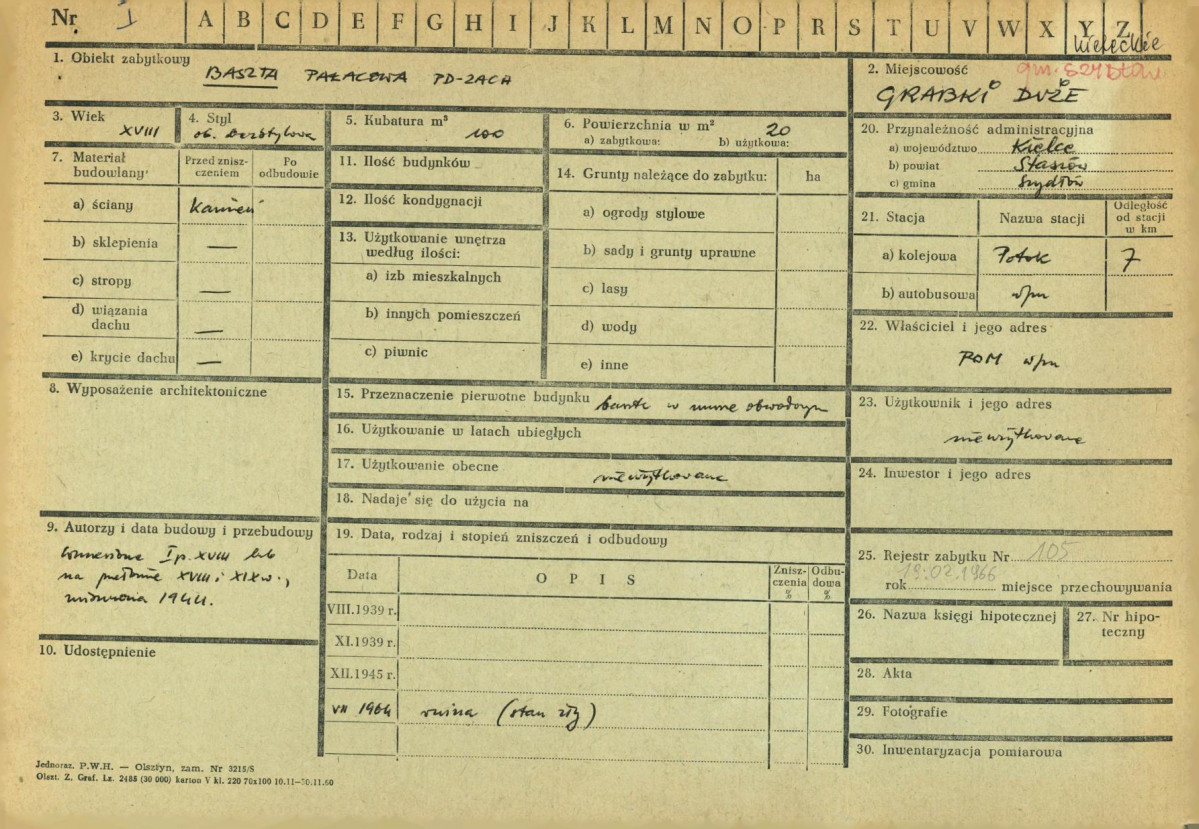 Nr I A B C D E F G H I J K L M N O P R S T U V W X Y Z
kieleckie
1. Obiekt zabytkowy
BASZTA PAŁACOWA PD-ZACH
2. Miejscowość gm. Szydłów
GRABKI DUŻE
3. Wiek
XVIII
4. Styl
ob. bezstylowa
5. Kubatura m³
100
6. Powierzchnia w m² 20
a) zabytkowa: b) użytkowa:
7. Materiał budowlany
Przed zniszczeniem
Po odbudowie
a) ściany Kamień
b) sklepienia —
c) stropy —
d) wiązania dachu —
e) krycie dachu —
8. Wyposażenie architektoniczne
9. Autorzy i data budowy i przebudowy
wzniesiona I p. XVIII lub
na przełomie XVIII i XIX w.,
zniszczona 1944.
10. Udostępnienie
11. Ilość budynków
12. Ilość kondygnacji
13. Użytkowanie wnętrza według ilości:
a) izb mieszkalnych
b) innych pomieszczeń
c) piwnic
14. Grunty należące do zabytku: ha
a) ogrody stylowe
b) sady i grunty uprawne
c) lasy
d) wody
e) inne
15. Przeznaczenie pierwotne budynku baszta w murze obwodowym
16. Użytkowanie w latach ubiegłych
17. Użytkowanie obecne
nieużytkowana
18. Nadaje się do użycia na
19. Data, rodzaj i stopień zniszczeń i odbudowy
Data O P I S Zniszczenia % Odbudowa %
VIII.1939 r.
XI.1939 r.
XII.1945 r.
VII 1964 ruina (stan zły)
20. Przynależność administracyjna
a) województwo Kielce
b) powiat Staszów
c) gmina Szydłów
21. Stacja Nazwa stacji Odległość od stacji w km
a) kolejowa Potok 7
b) autobusowa w/m
22. Właściciel i jego adres
POM w/m
23. Użytkownik i jego adres
nieużytkowana
24. Inwestor i jego adres
25. Rejestr zabytku Nr 105
rok 19.02.1966 miejsce przechowywania
26. Nazwa księgi hipotecznej
27. Nr hipoteczny
28. Akta
29. Fotografie
30. Inwentaryzacja pomiarowa
Jednoraz. P.W.H. — Olsztyn, zam. Nr 3215/S
Olszt. Z. Graf. Lz. 2485 (30 000) karton V kl. 220 70x100 10.11—30.11.60